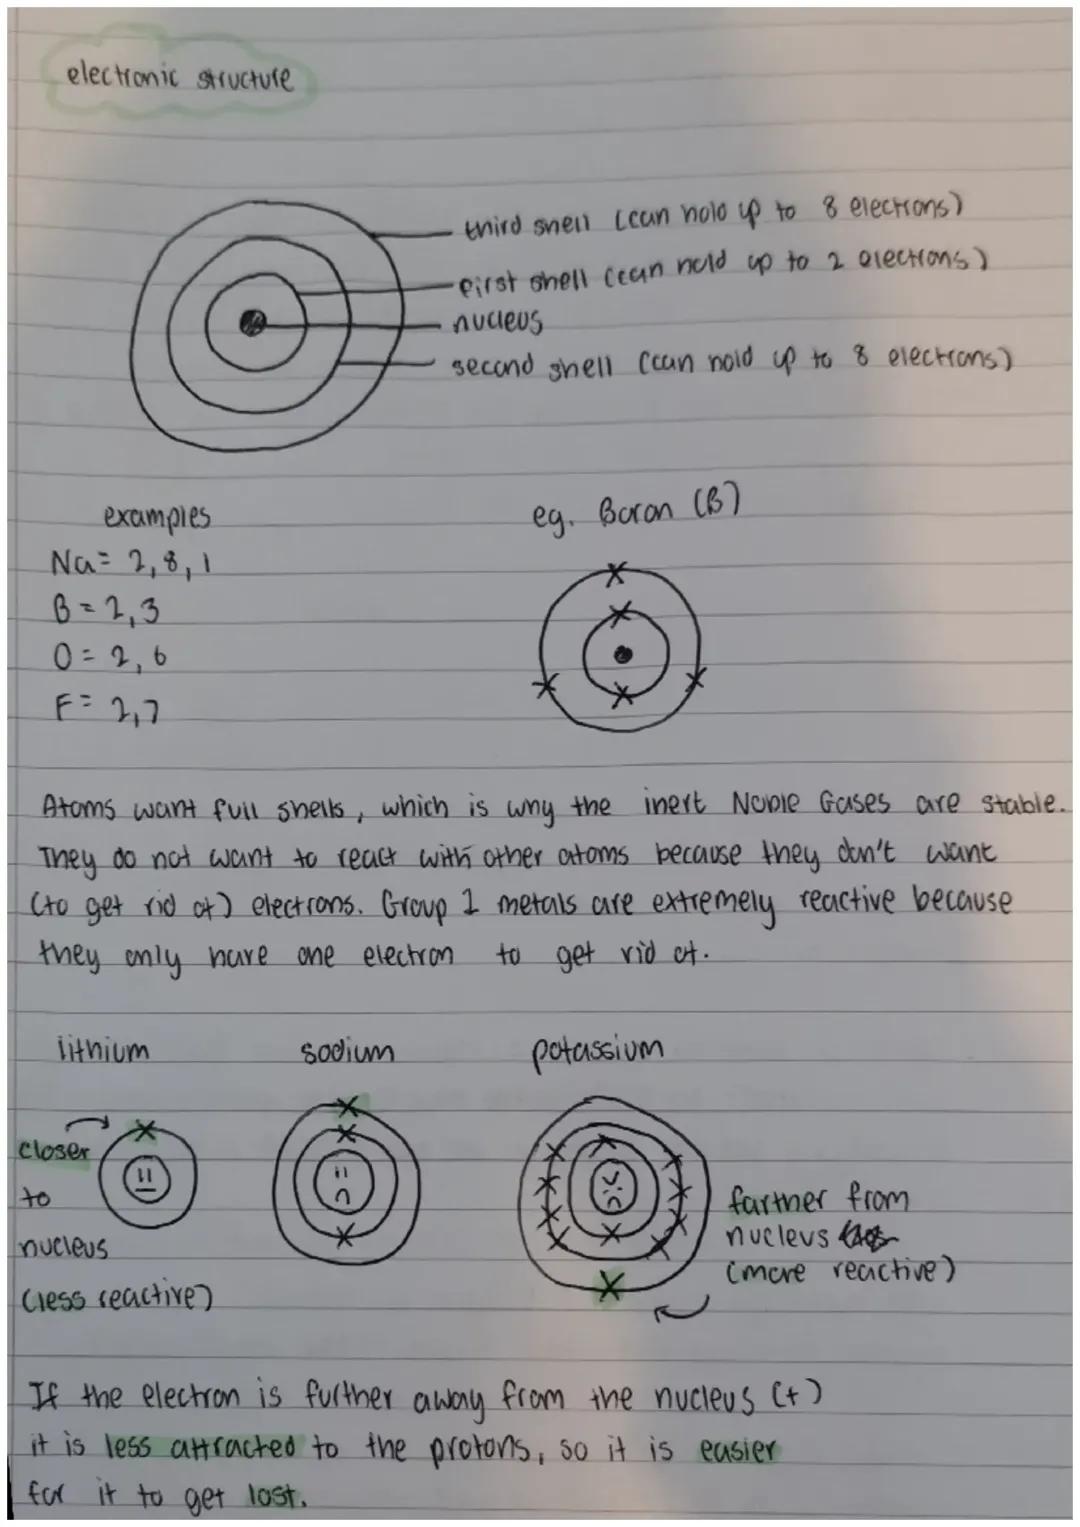 electronic structure
third shell (can hold up to 8 electrons)
first shell (can hold up to 2 electrons)
nucleus
second shell (can hold up to 8 electrons)
examples
Na = 2, 8, 1
B = 2, 3
O = 2, 6
F = 2,7
eg. Boron (B)
Atoms want full shells, which is why the inert Noble Gases are stable.
They do not want to react with other atoms because they don't want
(to get rid of) electrons. Group 1 metals are extremely reactive because
they only have one electron to get rid of.
lithium
sodium
potassium
closer
to
nucleus
(less reactive)
farther from
nucleus
(more reactive)
If the electron is further away from the nucleus (+)
it is less attracted to the protons, so it is easier
for it to get lost.